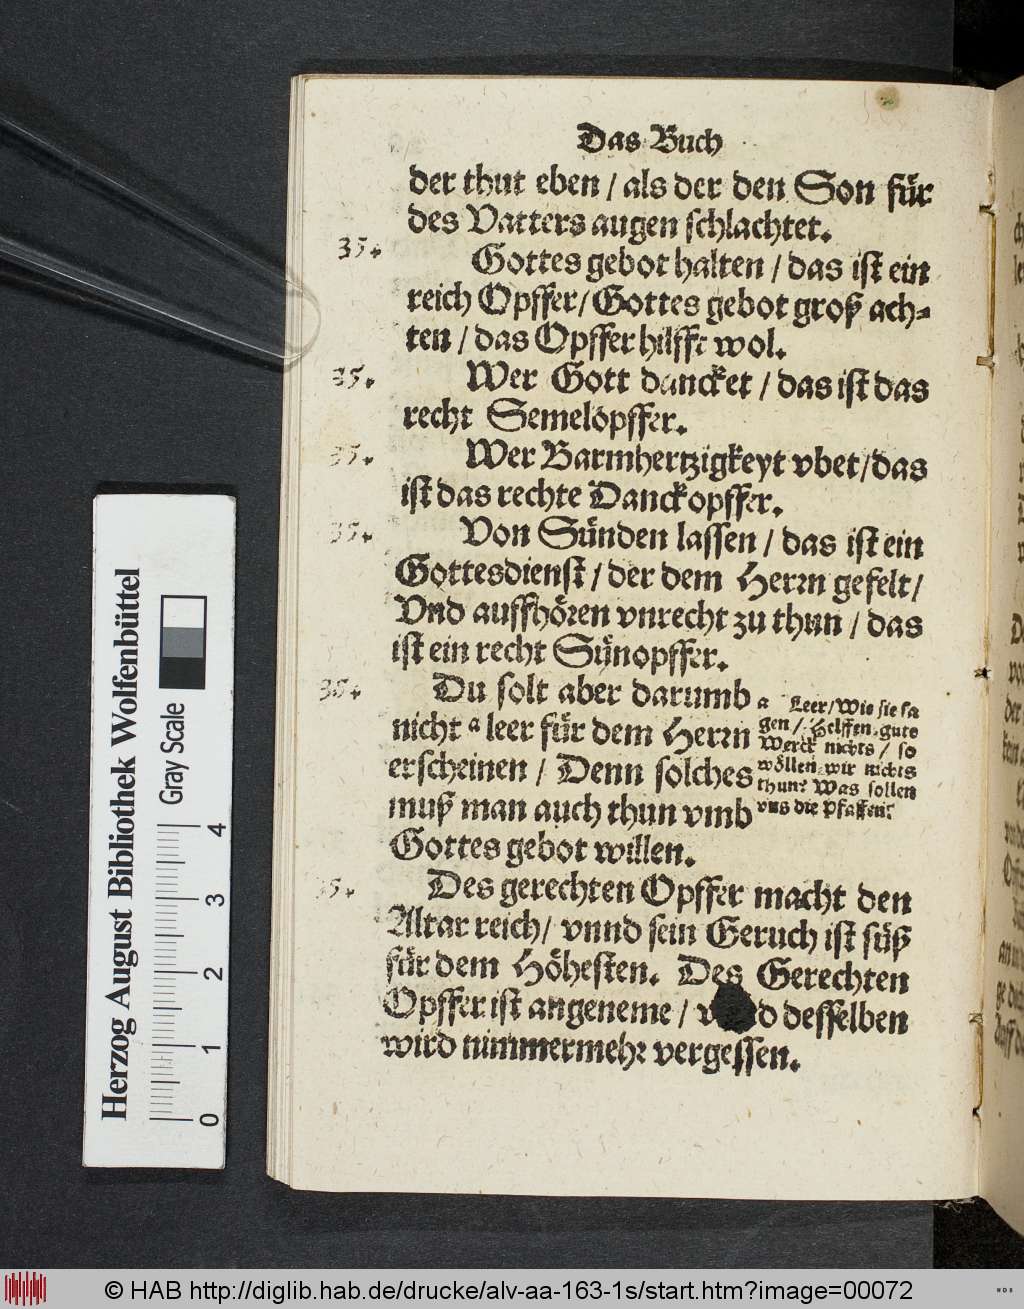 Das Buch
der thut eben / als der den Son für
des Vatters augen schlachtet.
35.
Gottes gebot halten / das ist ein
reich Opffer / Gottes gebot groß ach⸗
ten / das Opffer hilfft wol.
35.
Wer Gott dancket / das ist das
recht Semelopffer.
35.
Wer Barmhertzigkeyt vbet / das
ist das rechte Danckopffer.
35.
Von Sünden lassen / das ist ein
Gottesdienst / der dem Herrn gefelt /
Vnd auffhören vnrecht zu thun / das
ist ein recht Sünopffer.
35.
Du solt aber darumb
nicht a leer für dem Herrn
erscheinen / Denn solches
muß man auch thun vmb
Gottes gebot willen.
a Leer / Wie sie sa
gen / Helffen gute
Werck nichts / so
wöllen wir nichts
thun? Was sollen
vns die Pfaffen?
35.
Des gerechten Opffer macht den
Altar reich / vnnd sein Geruch ist süß
für dem Höhesten. Des Gerechten
Opffer ist angeneme / desselben
wird nimmermehr vergessen.
Herzog August Bibliothek Wolfenbüttel
Gray Scale
0 1 2 3 4
© HAB http://diglib.hab.de/drucke/alv-aa-163-1s/start.htm?image=00072